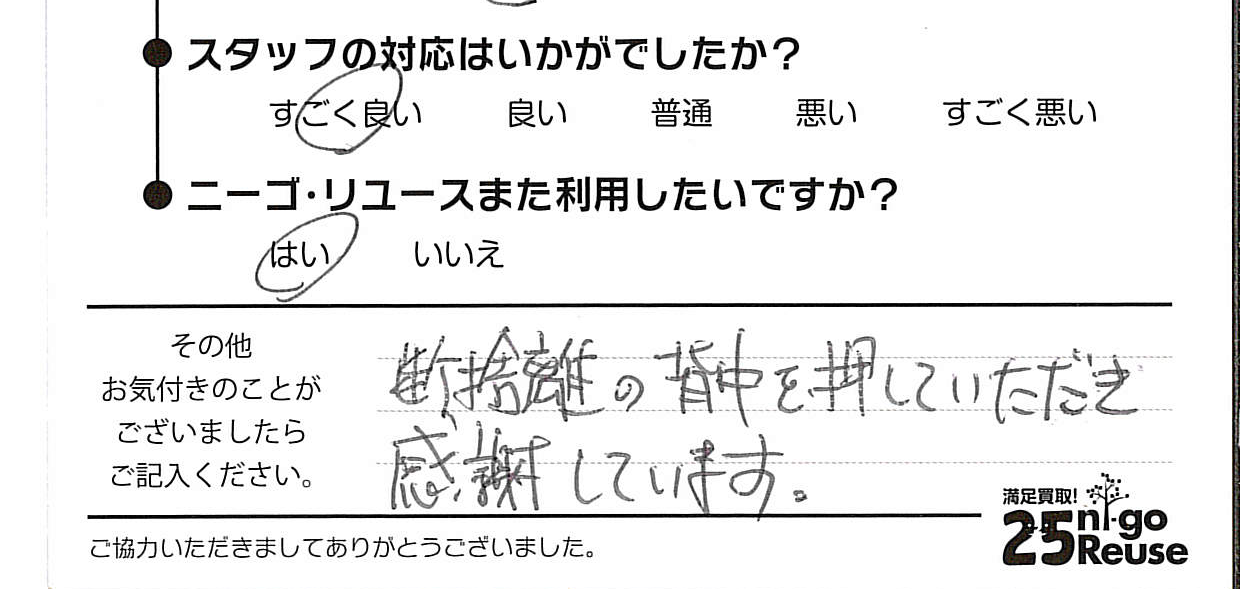 スタッフの対応はいかがでしたか？
すごく良い 良い 普通 悪い すごく悪い
ニーゴ・リユースまた利用したいですか？
はい いいえ
その他
お気付きのことが
ございましたら
ご記入ください。
断捨離の背中を押していただき
感謝しています。
満足買取!
25 ni-go
Reuse
ご協力いただきましてありがとうございました。